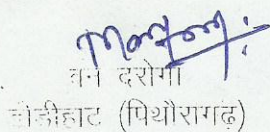 वन दरोगा
डीडीहाट (पिथौरागढ़)